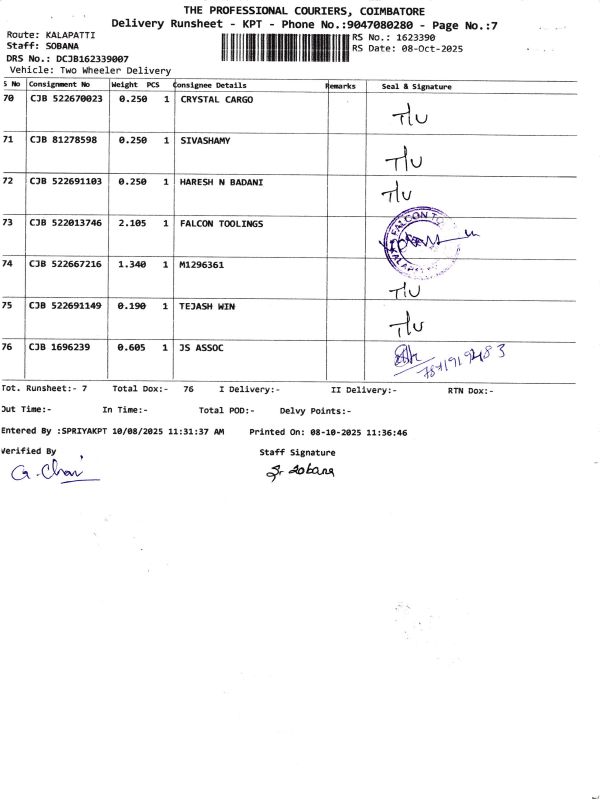 THE PROFESSIONAL COURIERS, COIMBATORE
Delivery Runsheet - KPT - Phone No.:9047080280 - Page No.:7
Route: KALAPATTI
Staff: SOBANA
DRS No.: DCJB162339007
Vehicle: Two Wheeler Delivery
RS No.: 1623390
RS Date: 08-Oct-2025
S No Consignment No Weight PCS Consignee Details Remarks Seal & Signature
70 CJB 522670023 0.250 1 CRYSTAL CARGO T/U
71 CJB 81278598 0.250 1 SIVASHAMY T/U
72 CJB 522691103 0.250 1 HARESH N BADANI T/U
73 CJB 522013746 2.105 1 FALCON TOOLINGS FALCON TO
74 CJB 522667216 1.340 1 M1296361 T/U
75 CJB 522691149 0.190 1 TEJASH WIN T/U
76 CJB 1696239 0.605 1 JS ASSOC
Tot. Runsheet:- 7 Total Dox:- 76 I Delivery:- II Delivery:- RTN Dox:-
Out Time:- In Time:- Total POD:- Delvy Points:-
Entered By :SPRIYAKPT 10/08/2025 11:31:37 AM Printed On: 08-10-2025 11:36:46
Verified By Staff Signature